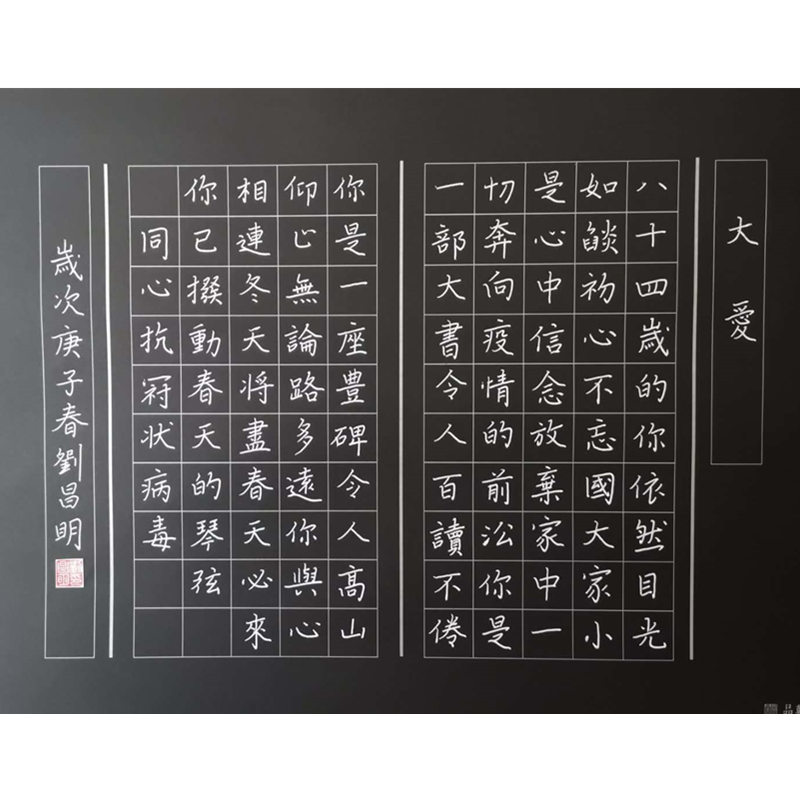 大愛
八十四歲的你依然目光
如燄初心不忘國大家小
是心中信念放棄家中一
切奔向疫情的前沿你是
一部大書令人百讀不倦
你是一座豊碑令人高山
仰止無論路多遠你與心
相連冬天将盡春天必來
你已撥動春天的琴弦
同心抗冠状病毒
歲次庚子春劉昌明